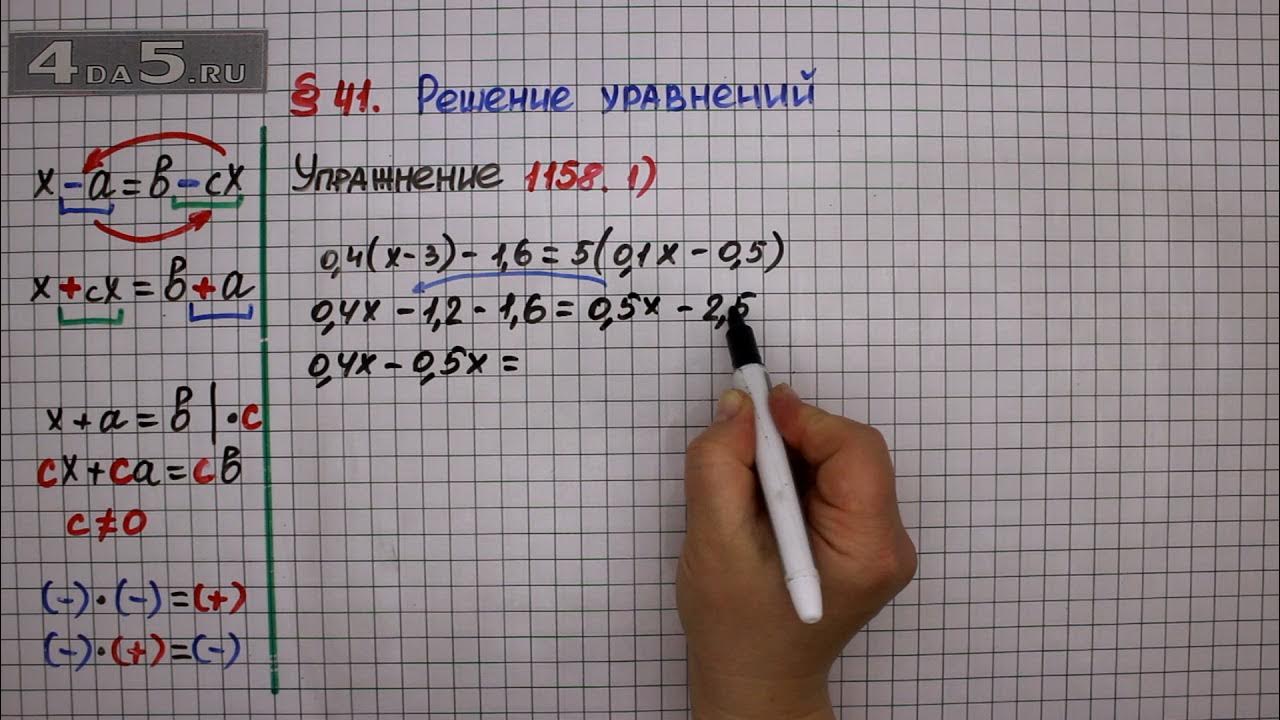 4DA5.RU
§ 41. Решение уравнений
x - a = в - cx
x + cx = в + a
x + a = в | · c
cx + ca = cв
c ≠ 0
(-) · (-) = (+)
(-) · (+) = (-)
Упражнение 1158. 1)
0,4(x - 3) - 1,6 = 5(0,1x - 0,5)
0,4x - 1,2 - 1,6 = 0,5x - 2,5
0,4x - 0,5x =